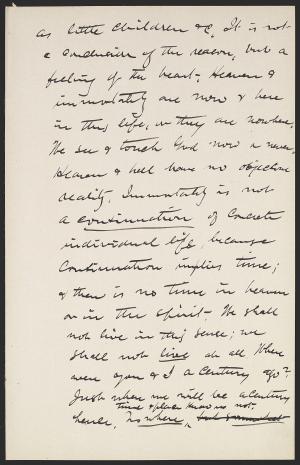 as little children &c. It is not
a conclusion of the reason, but a
feeling of the heart. Heaven &
immortality are now & here
in this life, or they are nowhere.
We see & touch God now or never.
Heaven & hell have no objective
reality. Immortality is not
a continuation of concrete
individual life, because
continuation implies time;
& there is no time in heaven
or in the spirit. We shall
not live in this sense; we
shall not live at all. Where
were you & I a century ago?
Just where we will be a century
time & place know us not.
hence, nowhere,